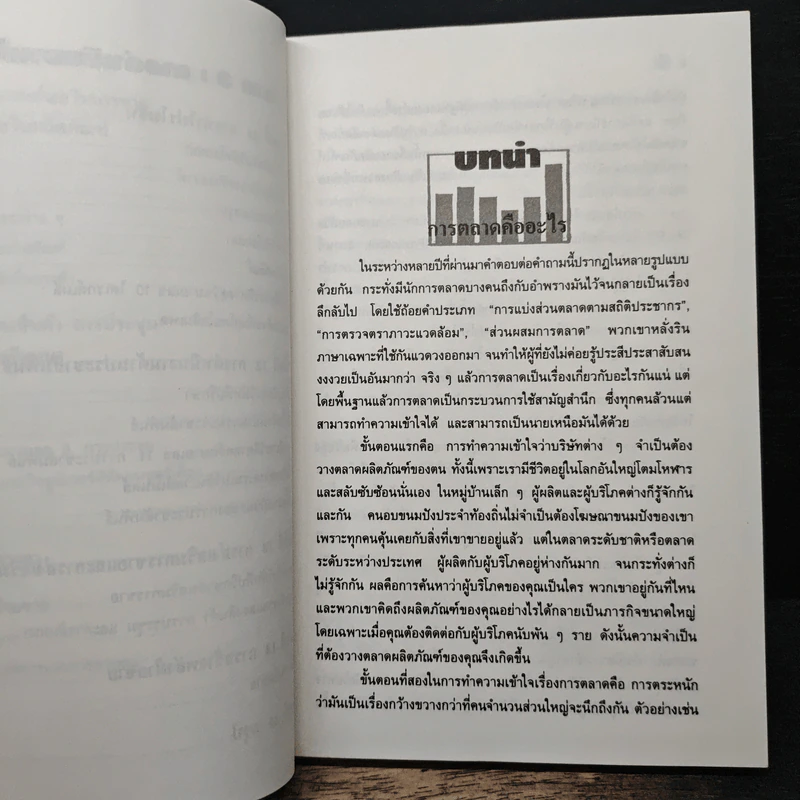 บทนำ
การตลาดคืออะไร
ในระหว่างหลายปีที่ผ่านมาคำตอบต่อคำถามนี้ปรากฏในหลายรูปแบบ
ด้วยกัน กระทั่งมีนักการตลาดบางคนถึงกับอำพรางมันไว้จนกลายเป็นเรื่อง
ลึกลับไป โดยใช้ถ้อยคำประเภท “การแบ่งส่วนตลาดตามสถิติประชากร”,
“การตรวจตราภาวะแวดล้อม”, “ส่วนผสมการตลาด” พวกเขาหลั่งริน
ภาษาเฉพาะที่ใช้กันแวดวงออกมา จนทำให้ผู้ที่ยังไม่ค่อยรู้ประสีประสาสับสน
งงงวยเป็นอันมากว่า จริง ๆ แล้วการตลาดเป็นเรื่องเกี่ยวกับอะไรกันแน่ แต่
โดยพื้นฐานแล้วการตลาดเป็นกระบวนการใช้สามัญสำนึก ซึ่งทุกคนล้วนแต่
สามารถทำความเข้าใจได้ และสามารถเป็นนายเหนือมันได้ด้วย
ขั้นตอนแรกคือ การทำความเข้าใจว่าบริษัทต่าง ๆ จำเป็นต้อง
วางตลาดผลิตภัณฑ์ของตน ทั้งนี้เพราะเรามีชีวิตอยู่ในโลกอันใหญ่โตมโหฬาร
และสลับซับซ้อนนั่นเอง ในหมู่บ้านเล็ก ๆ ผู้ผลิตและผู้บริโภคต่างก็รู้จักกัน
และกัน คนอบขนมปังประจำท้องถิ่นไม่จำเป็นต้องโฆษณาขนมปังของเขา
เพราะทุกคนคุ้นเคยกับสิ่งที่เขาขายอยู่แล้ว แต่ในตลาดระดับชาติหรือตลาด
ระดับระหว่างประเทศ ผู้ผลิตกับผู้บริโภคอยู่ห่างกันมาก จนกระทั่งต่างก็
ไม่รู้จักกัน ผลคือการค้นหาว่าผู้บริโภคของคุณเป็นใคร พวกเขาอยู่กันที่ไหน
และพวกเขาคิดถึงผลิตภัณฑ์ของคุณอย่างไรได้กลายเป็นภารกิจขนาดใหญ่
โดยเฉพาะเมื่อคุณต้องติดต่อกับผู้บริโภคนับพัน ๆ ราย ดังนั้นความจำเป็น
ที่ต้องวางตลาดผลิตภัณฑ์ของคุณจึงเกิดขึ้น
ขั้นตอนที่สองในการทำความเข้าใจเรื่องการตลาดคือ การตระหนัก
ว่ามันเป็นเรื่องกว้างขวางกว่าที่คนจำนวนส่วนใหญ่จะนึกถึงกัน ตัวอย่างเช่น